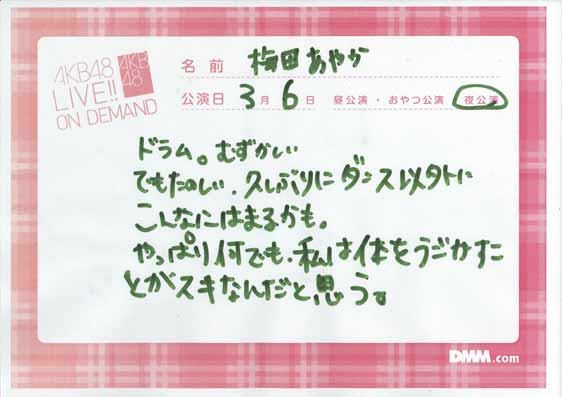 AKB48
LIVE!!
ON DEMAND
AKB
48
名前 梅田あやか
公演日 3月6日 昼公演・おやつ公演 夜公演
ドラム。むずかしい
でもたのしい。久しぶりにダンス以外に
こんなにはまるかも。
やっぱり何でも、私は体をうごかすこ
とがスキなんだと思う。
DMM.com